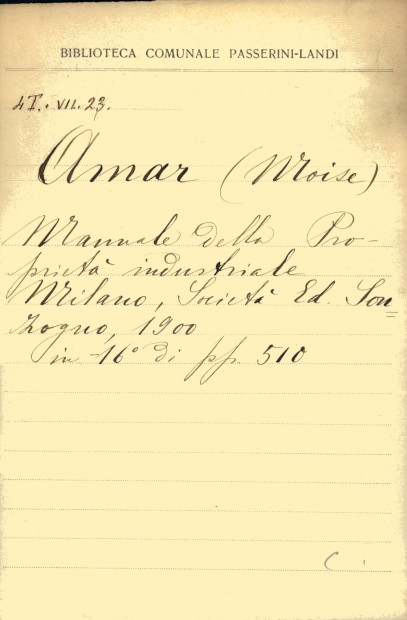 BIBLIOTECA COMUNALE PASSERINI-LANDI
4T. VII. 23.
Amar (Moise)
Manuale della Pro-
prietà industriale
Milano, Società Ed. Son
zogno, 1900
in-16° di pp. 510
C